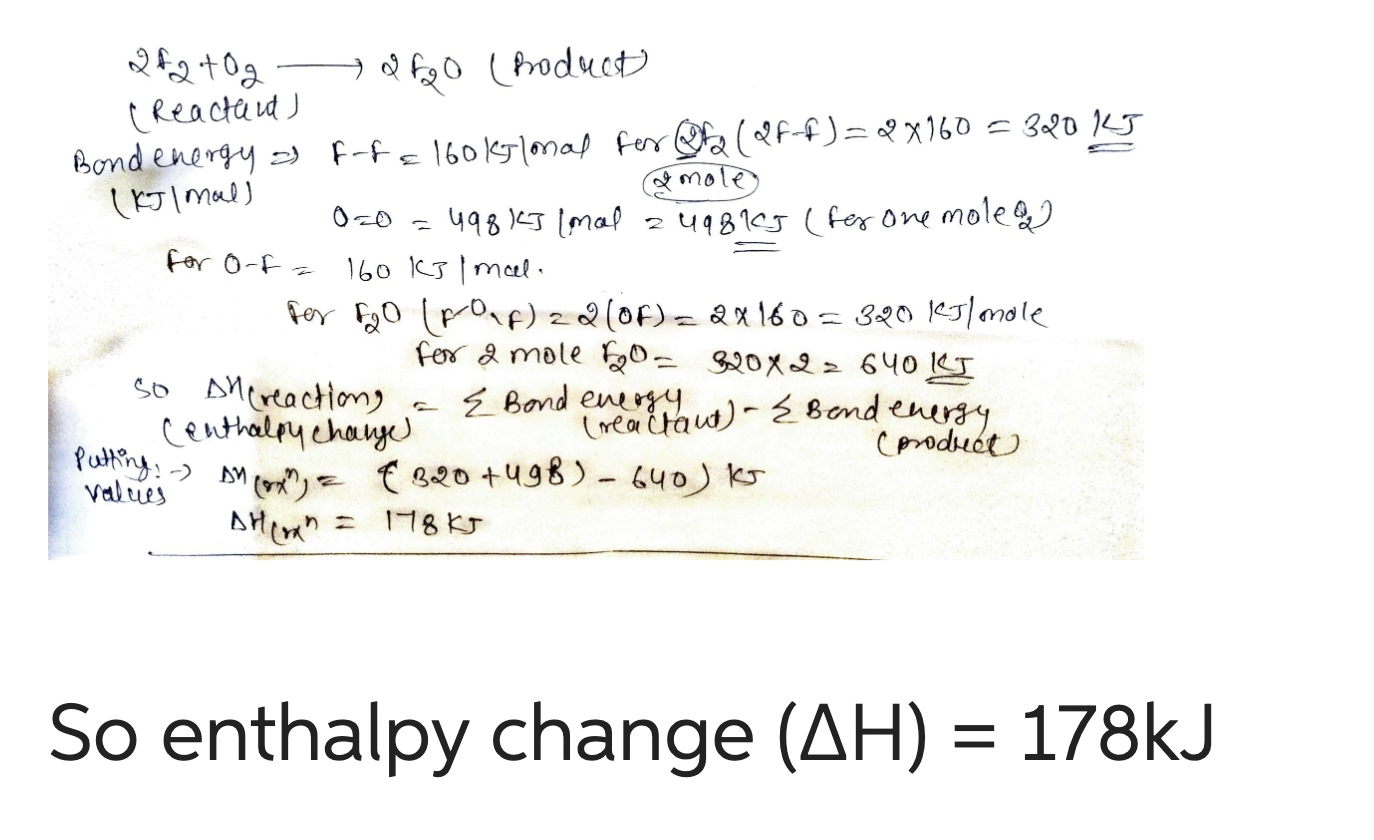 2F2+O2 ⟶ 2F2O (Product)
(Reactant)
Bond energy ⇒ F-F = 160 KJ/mol for 2F2 (2F-F) = 2×160 = 320 KJ
(KJ/mol)
(2 mole)
O=O = 498 KJ/mol = 498 KJ (for one mole O2)
for O-F = 160 KJ/mol.
for F2O (F-O-F) = 2(OF) = 2×160 = 320 KJ/mole
for 2 mole F2O = 320×2 = 640 KJ
So ΔH(reaction) = Σ Bond energy (reactant) - Σ Bond energy (product)
(enthalpy change)
Putting values → ΔH(rxn) = (320+498) - 640) KJ
ΔH(rxn = 178 KJ
So enthalpy change (ΔH) = 178kJ